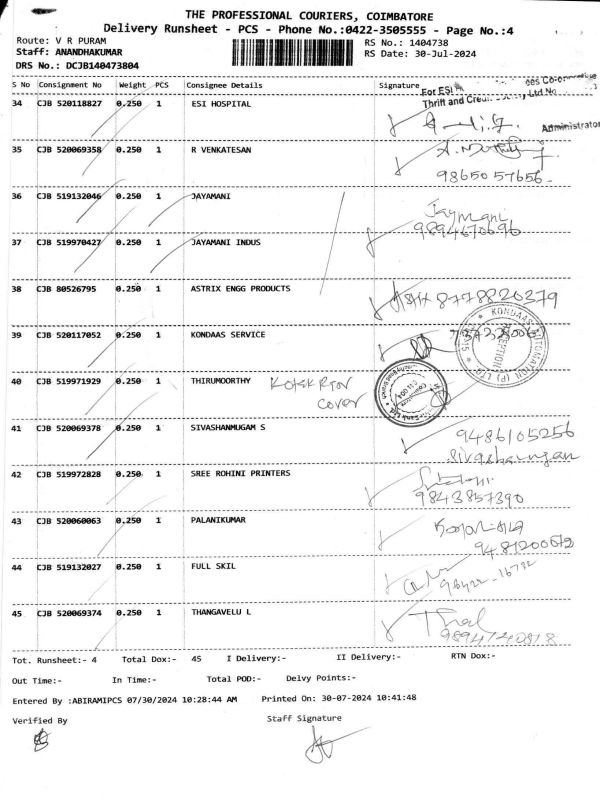 THE PROFESSIONAL COURIERS, COIMBATORE
Delivery Runsheet - PCS - Phone No.:0422-3505555 - Page No.:4
Route: V R PURAM
Staff: ANANDHAKUMAR
DRS No.: DCJB140473804
RS No.: 1404738
RS Date: 30-Jul-2024
S No Consignment No Weight PCS Consignee Details Signature
For ESI
Thrift and Credit
Administrator
34 CJB 520118827 0.250 1 ESI HOSPITAL
35 CJB 520069358 0.250 1 R VENKATESAN
9865057656
36 CJB 519132046 0.250 1 JAYAMANI
Jaymani
9894670696
37 CJB 519970427 0.250 1 JAYAMANI INDUS
38 CJB 80526795 0.250 1 ASTRIX ENGG PRODUCTS
8778820379
39 CJB 520117052 0.250 1 KONDAAS SERVICE
KONDAAS AUTOMATION (P) LTD
RECEPTION
40 CJB 519971929 0.250 1 THIRUMOORTHY
cover
41 CJB 520069378 0.250 1 SIVASHANMUGAM S
9486105256
42 CJB 519972828 0.250 1 SREE ROHINI PRINTERS
9843857390
43 CJB 520060063 0.250 1 PALANIKUMAR
44 CJB 519132027 0.250 1 FULL SKIL
45 CJB 520069374 0.250 1 THANGAVELU L
Tot. Runsheet:- 4 Total Dox:- 45 I Delivery:- II Delivery:- RTN Dox:-
Out Time:- In Time:- Total POD:- Delvy Points:-
Entered By :ABIRAMIPCS 07/30/2024 10:28:44 AM Printed On: 30-07-2024 10:41:48
Verified By Staff Signature